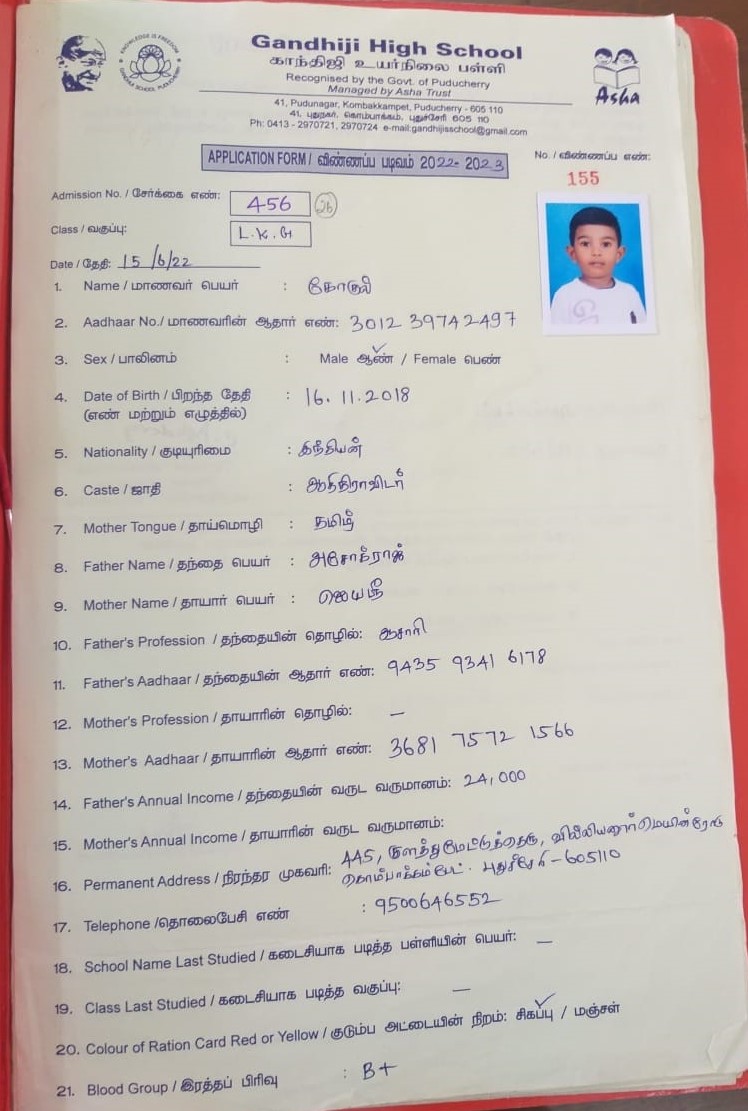 Gandhiji High School
காந்திஜி உயர்நிலை பள்ளி
Recognised by the Govt. of Puducherry
Managed by Asha Trust
41, Pudunagar, Kombakkampet, Puducherry - 605 110
41, புதுநகர், கொம்பாக்கம், புதுச்சேரி 605 110
Ph: 0413 - 2970721, 2970724 e-mail:gandhijisschool@gmail.com
KNOWLEDGE IS FREEDOM
Asha
APPLICATION FORM / விண்ணப்ப படிவம் 2022-2023
No. / விண்ணப்ப எண்:
155
Admission No. / சேர்க்கை எண்: 456 26
Class / வகுப்பு: L.K.G
Date / தேதி: 15/6/22
1. Name / மாணவர் பெயர் : கோகுல்
2. Aadhaar No./ மாணவரின் ஆதார் எண்: 3012 39742497
3. Sex / பாலினம் : Male ஆண் / Female பெண்
4. Date of Birth / பிறந்த தேதி : 16.11.2018
(எண் மற்றும் எழுத்தில்)
5. Nationality / குடியுரிமை : இந்தியன்
6. Caste / ஜாதி : ஆதிதிராவிடர்
7. Mother Tongue / தாய்மொழி : தமிழ்
8. Father Name / தந்தை பெயர் : அசோக்ராஜ்
9. Mother Name / தாயார் பெயர் : ஜெயஸ்ரீ
10. Father's Profession / தந்தையின் தொழில்: ஆசாரி
11. Father's Aadhaar / தந்தையின் ஆதார் எண்: 9435 9341 6178
12. Mother's Profession / தாயாரின் தொழில்: –
13. Mother's Aadhaar / தாயாரின் ஆதார் எண்: 3681 7572 1566
14. Father's Annual Income / தந்தையின் வருட வருமானம்: 24,000
15. Mother's Annual Income / தாயாரின் வருட வருமானம்:
16. Permanent Address / நிரந்தர முகவரி: 445, குளத்துமேட்டுத்தெரு, வில்லியனூர் மெயின்ரோடு
கொம்பாக்கம்பேட். புதுச்சேரி - 605110
17. Telephone /தொலைபேசி எண் : 9500646552
18. School Name Last Studied / கடைசியாக படித்த பள்ளியின் பெயர்: –
19. Class Last Studied / கடைசியாக படித்த வகுப்பு: –
20. Colour of Ration Card Red or Yellow / குடும்ப அட்டையின் நிறம்: சிகப்பு / மஞ்சள்
21. Blood Group / இரத்தப் பிரிவு : B+